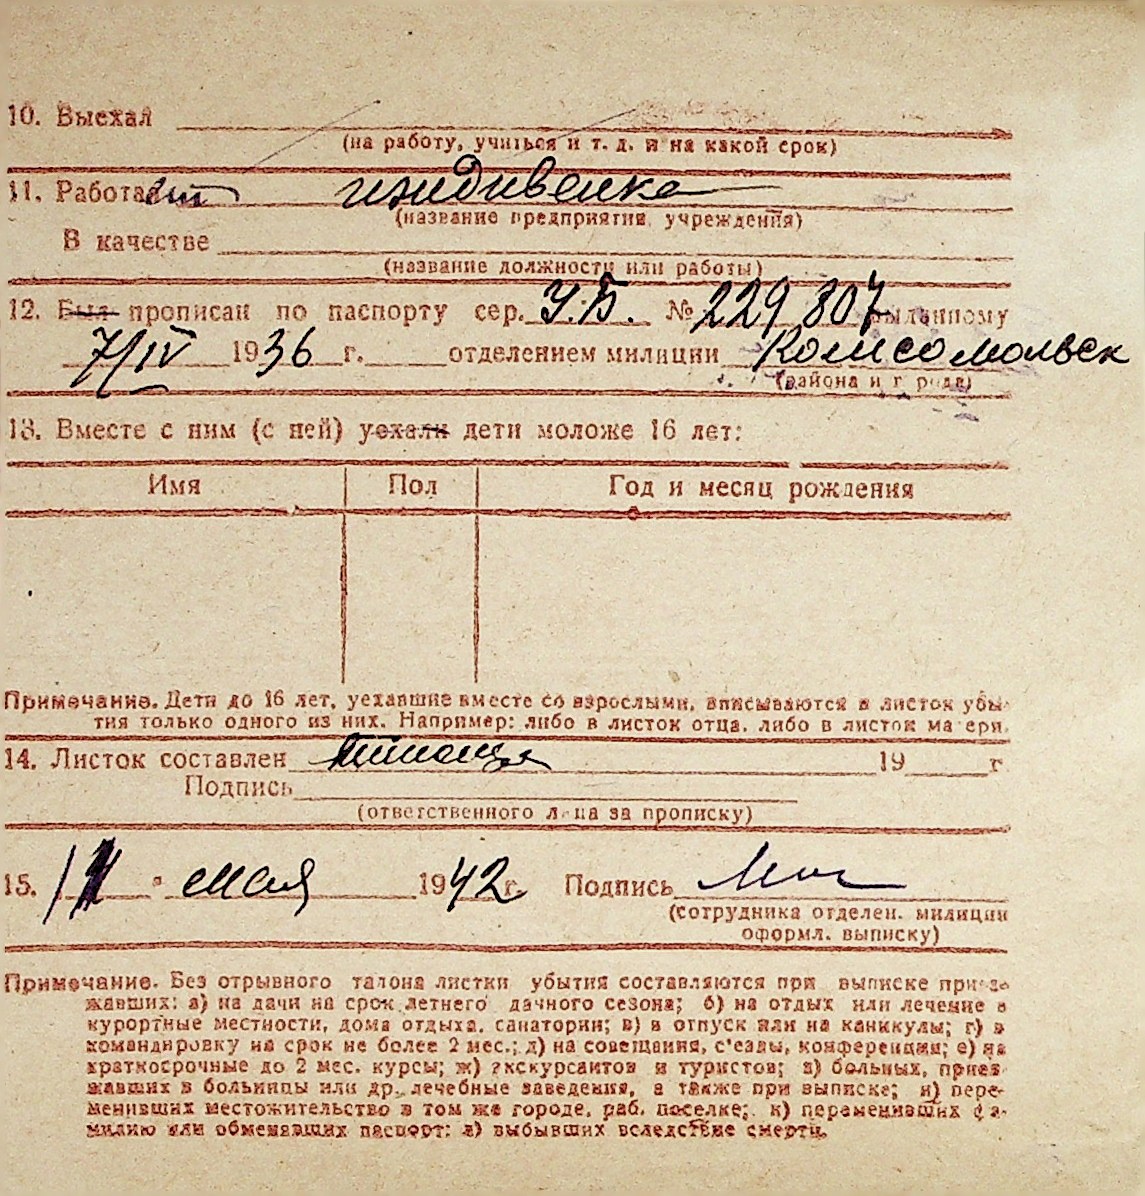 10. Выехал
(на работу, учиться и т. д. и на какой срок)
11. Работает иждивенка
(название предприятия, учреждения)
В качестве
(название должности или работы)
12. Был прописан по паспорту сер. У.Б. № 229 807 выданному
7/IV 1936 г. отделением милиции Комсомольск
(района и города)
13. Вместе с ним (с ней) уехали дети моложе 16 лет:
Имя Пол Год и месяц рождения
Примечание. Дети до 16 лет, уехавшие вместе со взрослыми, вписываются в листок убы-
тия только одного из них. Например: либо в листок отца, либо в листок матери.
14. Листок составлен 19 г.
Подпись
(ответственного лица за прописку)
15. мая 1942 г. Подпись
(сотрудника отделен. милиции
оформл. выписку)
Примечание. Без отрывного талона листки убытия составляются при выписке приез-
жавших: а) на дачи на срок летнего дачного сезона; б) на отдых или лечение в
курортные местности, дома отдыха, санатории; в) в отпуск или на каникулы; г) в
командировку на срок не более 2 мес.; д) на совещания, с'езды, конференции; е) на
краткосрочные до 2 мес. курсы; ж) экскурсантов и туристов; з) больных, приез-
жавших в больницы или др. лечебные заведения, а также при выписке; и) пере-
менивших местожительство в том же городе, раб. поселке; к) переменивших фа-
милию или обменявших паспорт; л) выбывших вследствие смерти.